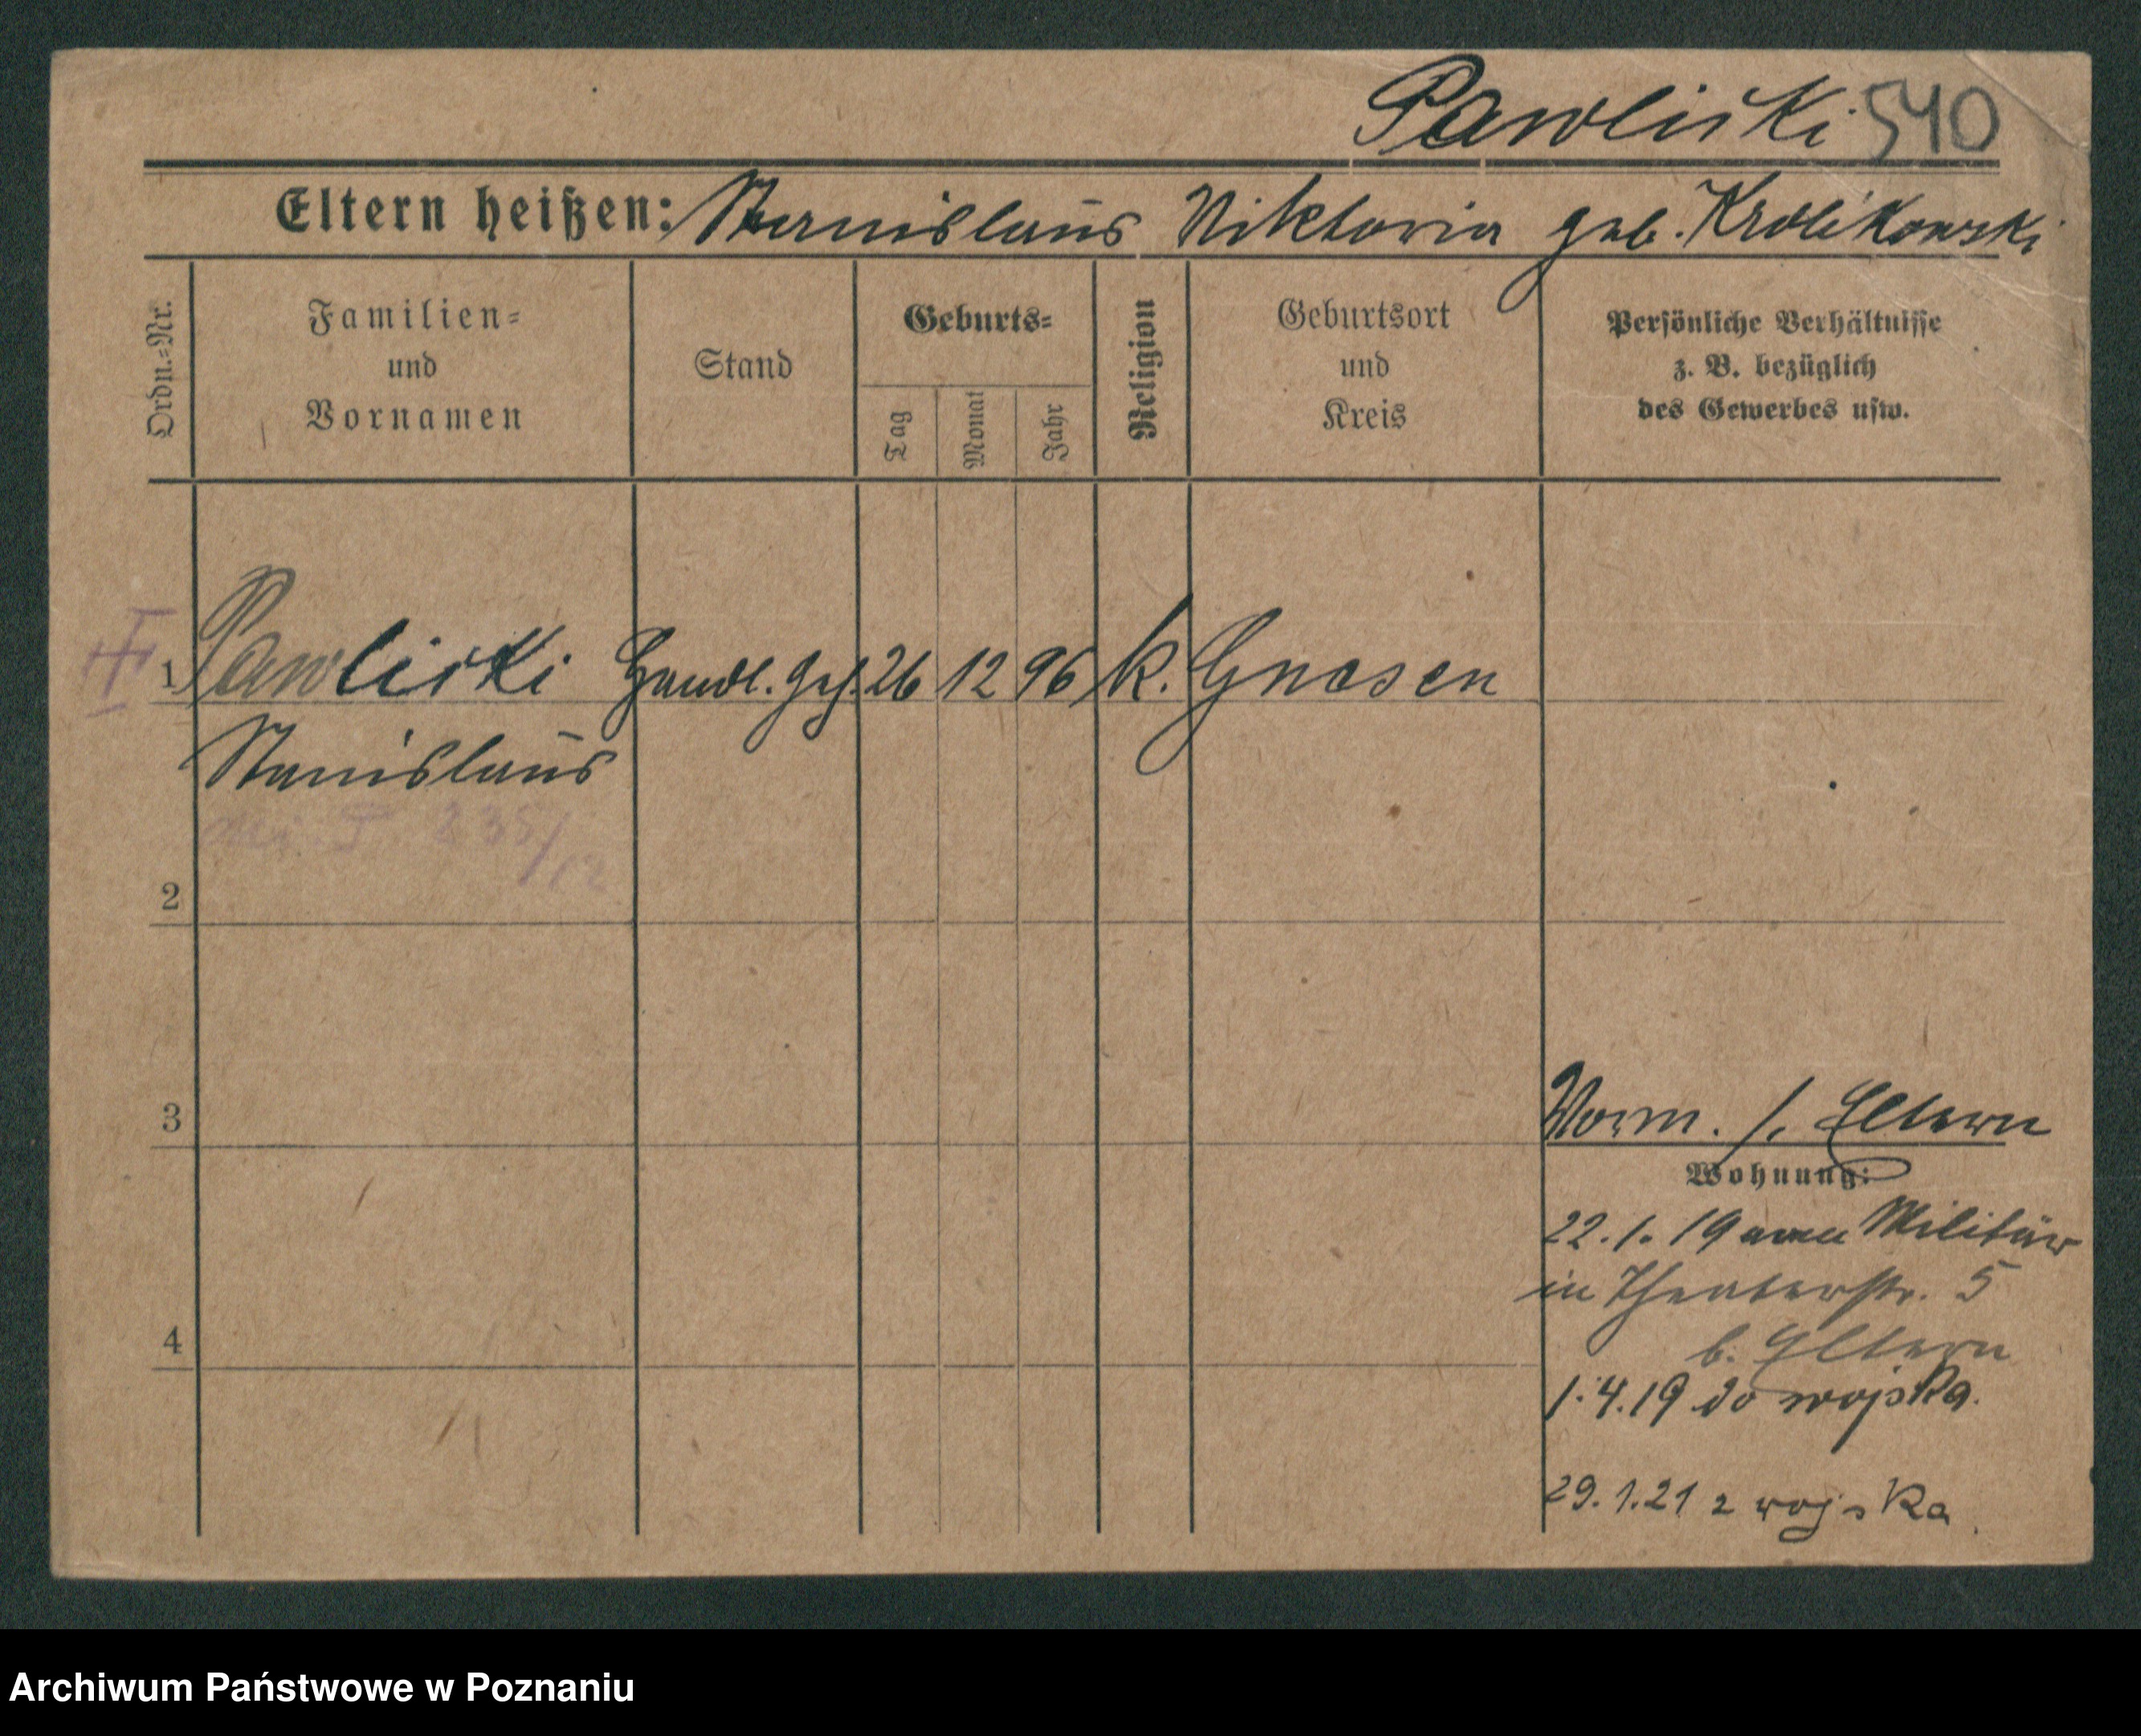 Pawliski 540
Eltern heißen: Stanislaus Viktoria geb. Krolikowski
Ordn.-Nr.
Familien-
und
Vornamen
Stand
Geburts-
Tag
Monat
Jahr
Religion
Geburtsort
und
Kreis
Persönliche Verhältnisse
z. B. bezüglich
des Gewerbes usw.
1 Pawliski Handl. Geh. 26 12 96 k. Gnesen
Stanislaus
235/12
2
3
Vorm. s. Eltern
Wohnung:
22.1.19 vom Militär
in Theaterstr. 5
b. Eltern
4
1.4.19 do wojska.
29.1.21 z wojska.
Archiwum Państwowe w Poznaniu